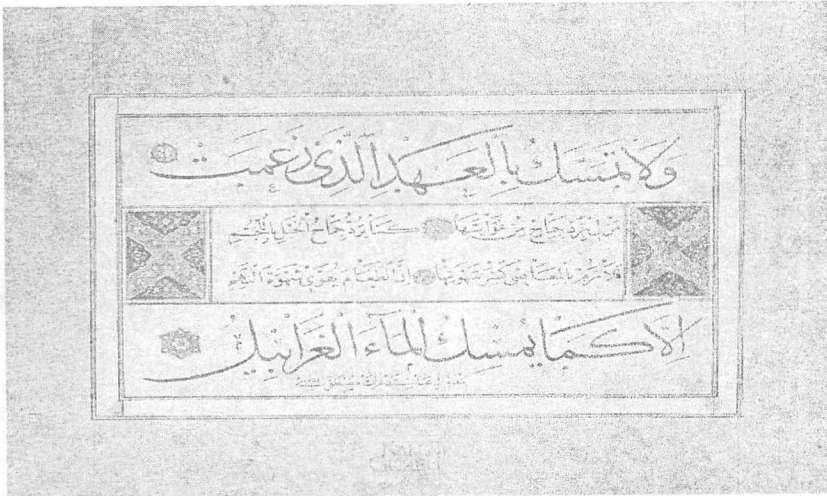 وَلَا تَمَسَّكُ بِالْعَهْدِ الَّذِي زَعَمَتْ
مَنْ لِي بِرَدِّ جِمَاحٍ مِنْ غَوَايَتِهَا كَمَا يُرَدُّ جِمَاحُ الْخَيْلِ بِاللُّجُمِ
فَلَا تَرُمْ بِالْمَعَاصِي كَسْرَ شَهْوَتِهَا إِنَّ الطَّعَامَ يُقَوِّي شَهْوَةَ النَّهِمِ
إِلَّا كَمَا يُمْسِكُ الْمَاءَ الْغَرَابِيلُ